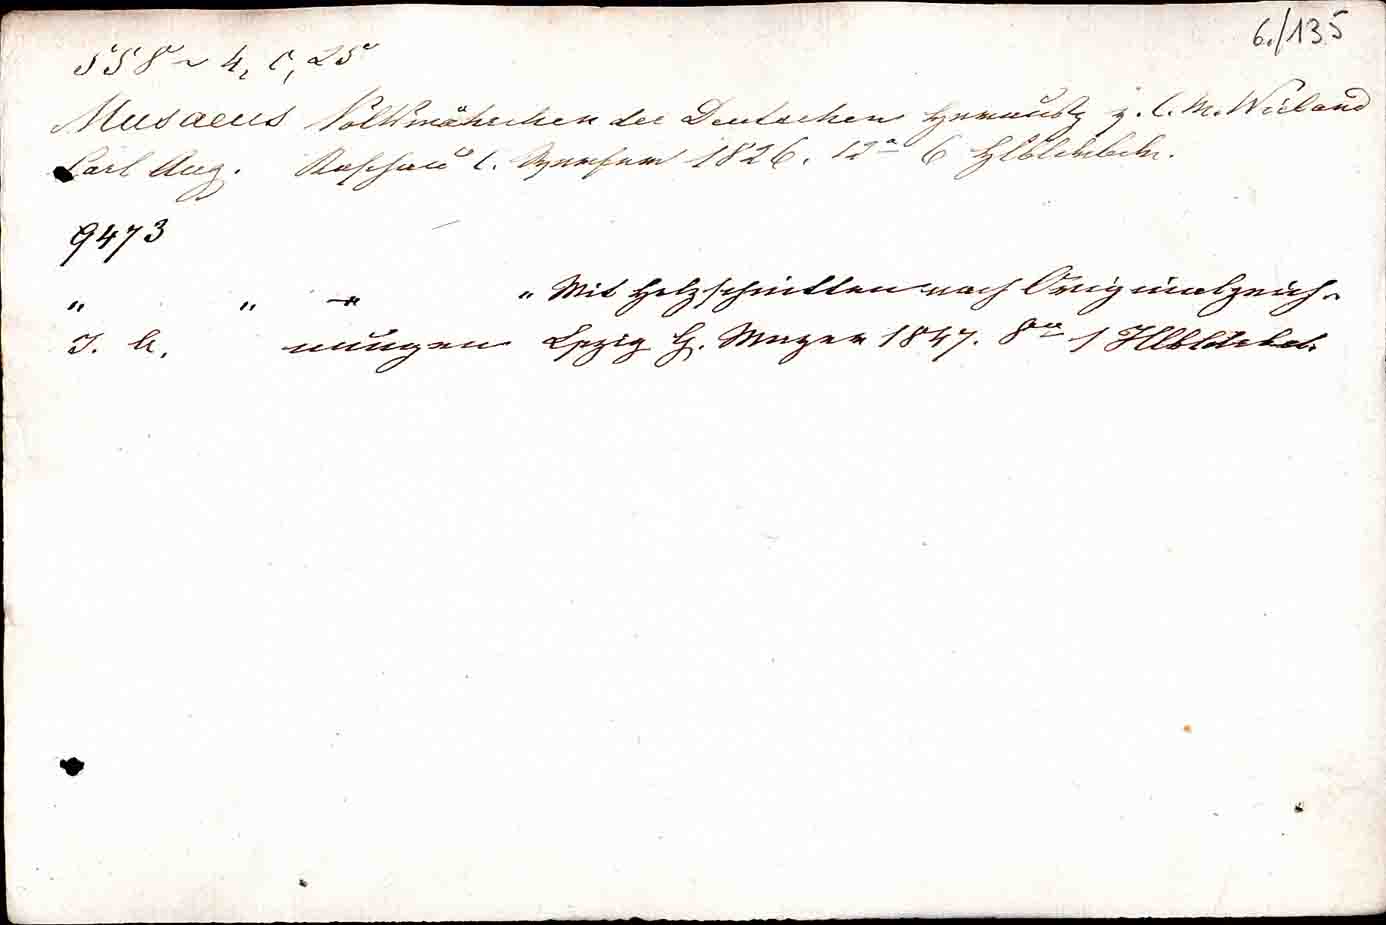 6./135
558 ~ 4, C, 25
Musaeus Volksmährchen der Deutschen herausg v. C. M. Wieland
Carl Aug. Kaschau 1826. 12° 6 Hlbldrbde.
9473
" " " " Mit Holzschnitten nach Originalzeich-
J. A. nungen Lpzig G. Mayer 1847. 8vo 1 Hlbldrbd.